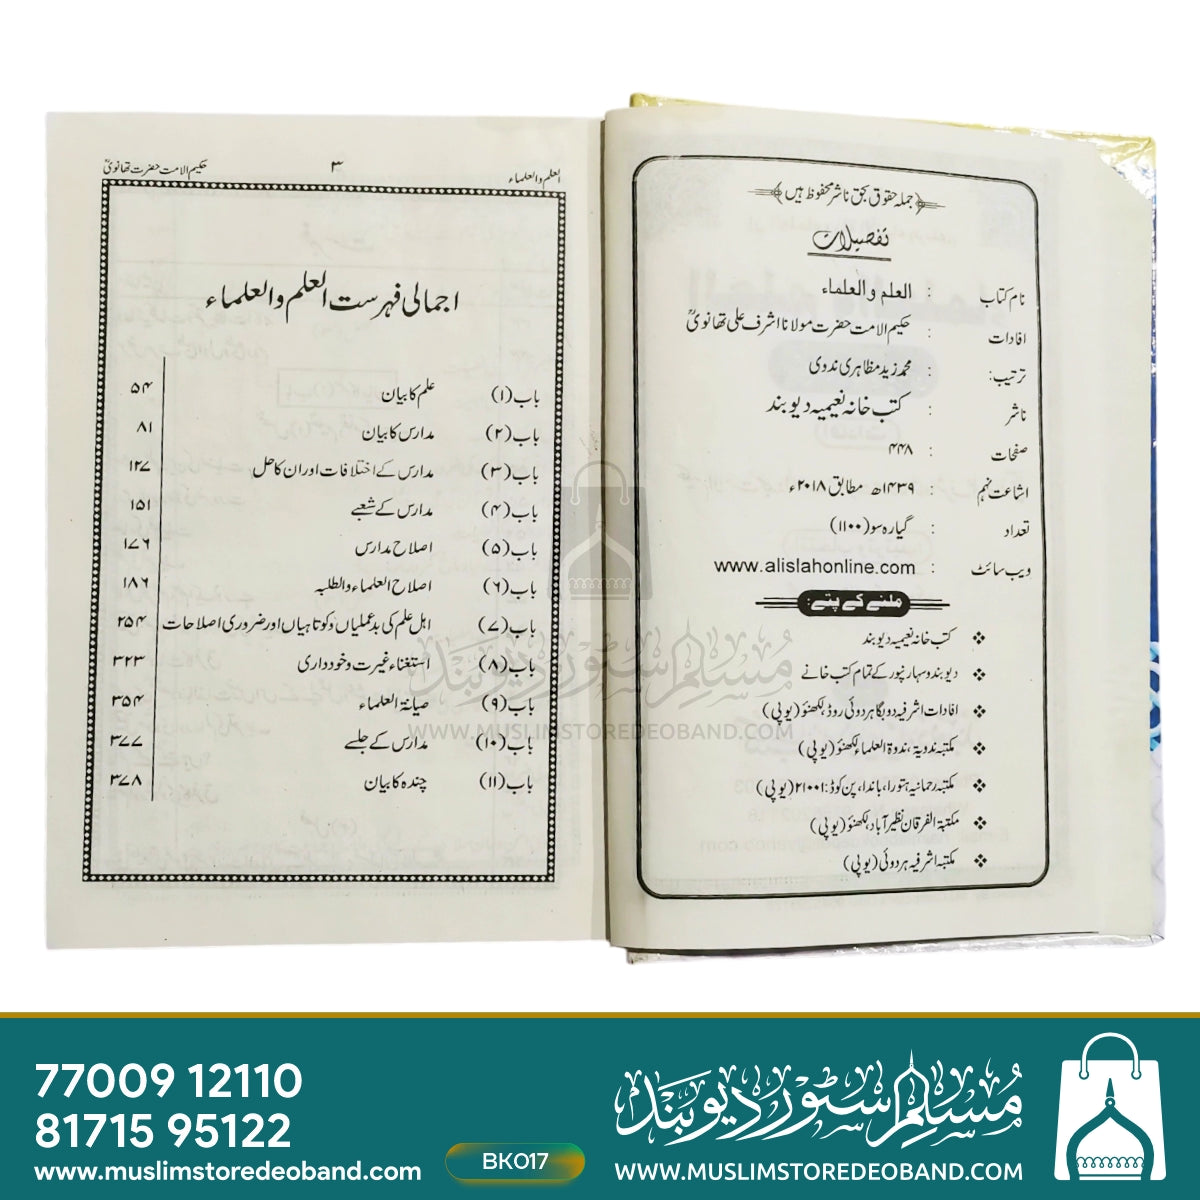 جملہ حقوق بحق ناشر محفوظ ہیں
تفصیلات
نام کتاب : العلم والعلماء
افادات : حکیم الامت حضرت مولانا اشرف علی تھانویؒ
ترتیب : محمد زید مظاہری ندوی
ناشر : کتب خانہ نعیمیہ دیوبند
صفحات : ۴۴۸
اشاعت نہم : ۱۴۳۹ھ مطابق ۲۰۱۸ء
تعداد : گیارہ سو (۱۱۰۰)
ویب سائٹ : www.alislahonline.com
ملنے کے پتے:
کتب خانہ نعیمیہ دیوبند
دیوبند و سہارنپور کے تمام کتب خانے
افادات اشرفیہ دوبگا ہردوئی روڈ، لکھنؤ (یوپی)
مکتبہ ندویۃ، ندوۃ العلماء لکھنؤ (یوپی)
مکتبہ رحمانیہ ہتورا، باندا، پن کوڈ: ۲۱۰۰۱ (یوپی)
مکتبۃ الفرقان نظیر آباد، لکھنؤ (یوپی)
مکتبہ اشرفیہ ہردوئی (یوپی)
العلم والعلماء ۳ حکیم الامت حضرت تھانویؒ
اجمالی فہرست العلم والعلماء
باب (۱) علم کا بیان ۵۴
باب (۲) مدارس کا بیان ۸۱
باب (۳) مدارس کے اختلافات اور ان کا حل ۱۲۷
باب (۴) مدارس کے شعبے ۱۵۱
باب (۵) اصلاح مدارس ۱۷۶
باب (۶) اصلاح العلماء والطلبہ ۱۸۶
باب (۷) اہل علم کی بدعملیاں و کوتاہیاں اور ضروری اصلاحات ۲۵۴
باب (۸) استغناء غیرت و خودداری ۳۲۳
باب (۹) صیانۃ العلماء ۳۵۴
باب (۱۰) مدارس کے جلسے ۳۷۷
باب (۱۱) چندہ کا بیان ۳۷۸
مسلم سٹور دیوبند
WWW.MUSLIMSTOREDEOBAND.COM
77009 12110
81715 95122
www.muslimstoredeoband.com
BK017
مسلم سٹور دیوبند
WWW.MUSLIMSTOREDEOBAND.COM